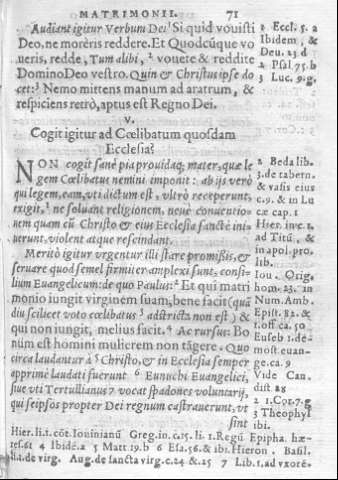 MATRIMONII. 71
Audiant igitur Verbum Dei¹ Si quid vovisti
Deo, ne morêris reddere. Et Quodcũque vo
ueris, redde, Tum alibi, ² vouete & reddite
Domino Deo vestro. Quin & Christus ipse do
cet:³ Nemo mittens manum ad aratrum, &
respiciens retrò, aptus est Regno Dei.
V.
Cogit igitur ad Cœlibatum quosdam
Ecclesia?
NON cogit sanè pia prouidaq; mater, quæ le
gem Cœlibatus nemini imponit: ab ijs verò
qui legem, eam, vti dictum est, vltrò receperunt,
exigit, ² ne soluant religionem, neue conuentio-
nem quam cũ Christo & eius Ecclesia sanctè ini-
uerunt, violent atque rescindant.
Meritò igitur vrgentur illi stare promissis, &
seruare quod semel firmiter amplexi sunt, consi-
lium Euangelicum: de quo Paulus: ² Et qui matri
monio iungit virginem suam, bene facit (quã
diu scilicet voto cœlibatus ⁵ adstricta non est) &
qui non iungit, melius facit.⁴ Ac rursus: Bo
num est homini mulierem non tãgere. Quo
circa laudantur à ⁵ Christo, & in Ecclesia semper
apprimè laudati fuerunt ⁶ Eunuchi Euangelici,
siue vti Tertullianus ⁷ vocat spadones voluntarij,
qui seipsos propter Dei regnum castrauerunt, vt
sint
1 Eccl. 5. a
Ibidem, &
Deu. 23 d
2 Psal. 75. b
3 Luc. 9. g.
2 Beda lib.
3. de tabern.
& vasis eius
c. 9. & in Lu
cæ cap. 1
Hier. inc. 1.
ad Titũ, &
in apol. pro.
lib.
Iou. Orig.
hom. 23. in
Num. Amb.
Epist. 82. &
1. off ca. 50
Euseb 1. de-
most euan-
ge. ca. 9
Vide Can.
dist 28
2 1. Cor. 7. g
3 Theophyl
ibi.
Hier. li. 1. cõt. Iouinianũ Greg. in c. 15. li. 1. Regũ Epipha. hæ-
ref. 61 4 Ibidẽ. a 5 Matt. 19. b 6 Esa. 56. & ibi. Hieron. Basil.
li. 1. de virg. Aug. de sancta virg. c. 24 & 25 7 Lib. 1. ad vxorē.